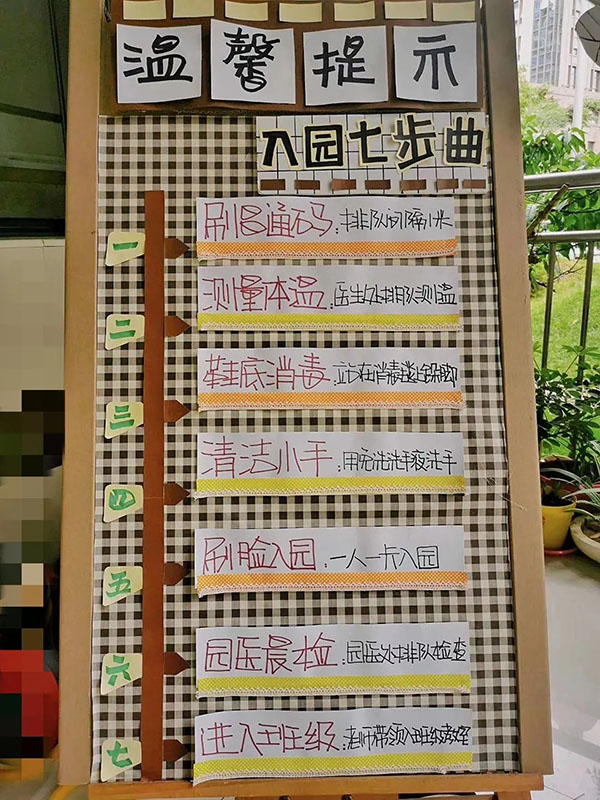 温馨提示
入园七步曲
一 刷邕通码：排队间隔1米
二 测量体温：医生处排队测温
三 鞋底消毒：站在消毒毯上跺脚
四 清洁小手：用免洗洗手液洗手
五 刷脸入园：一人一卡入园
六 园医晨检：园医处排队检查
七 进入班级：老师带领入班级教室